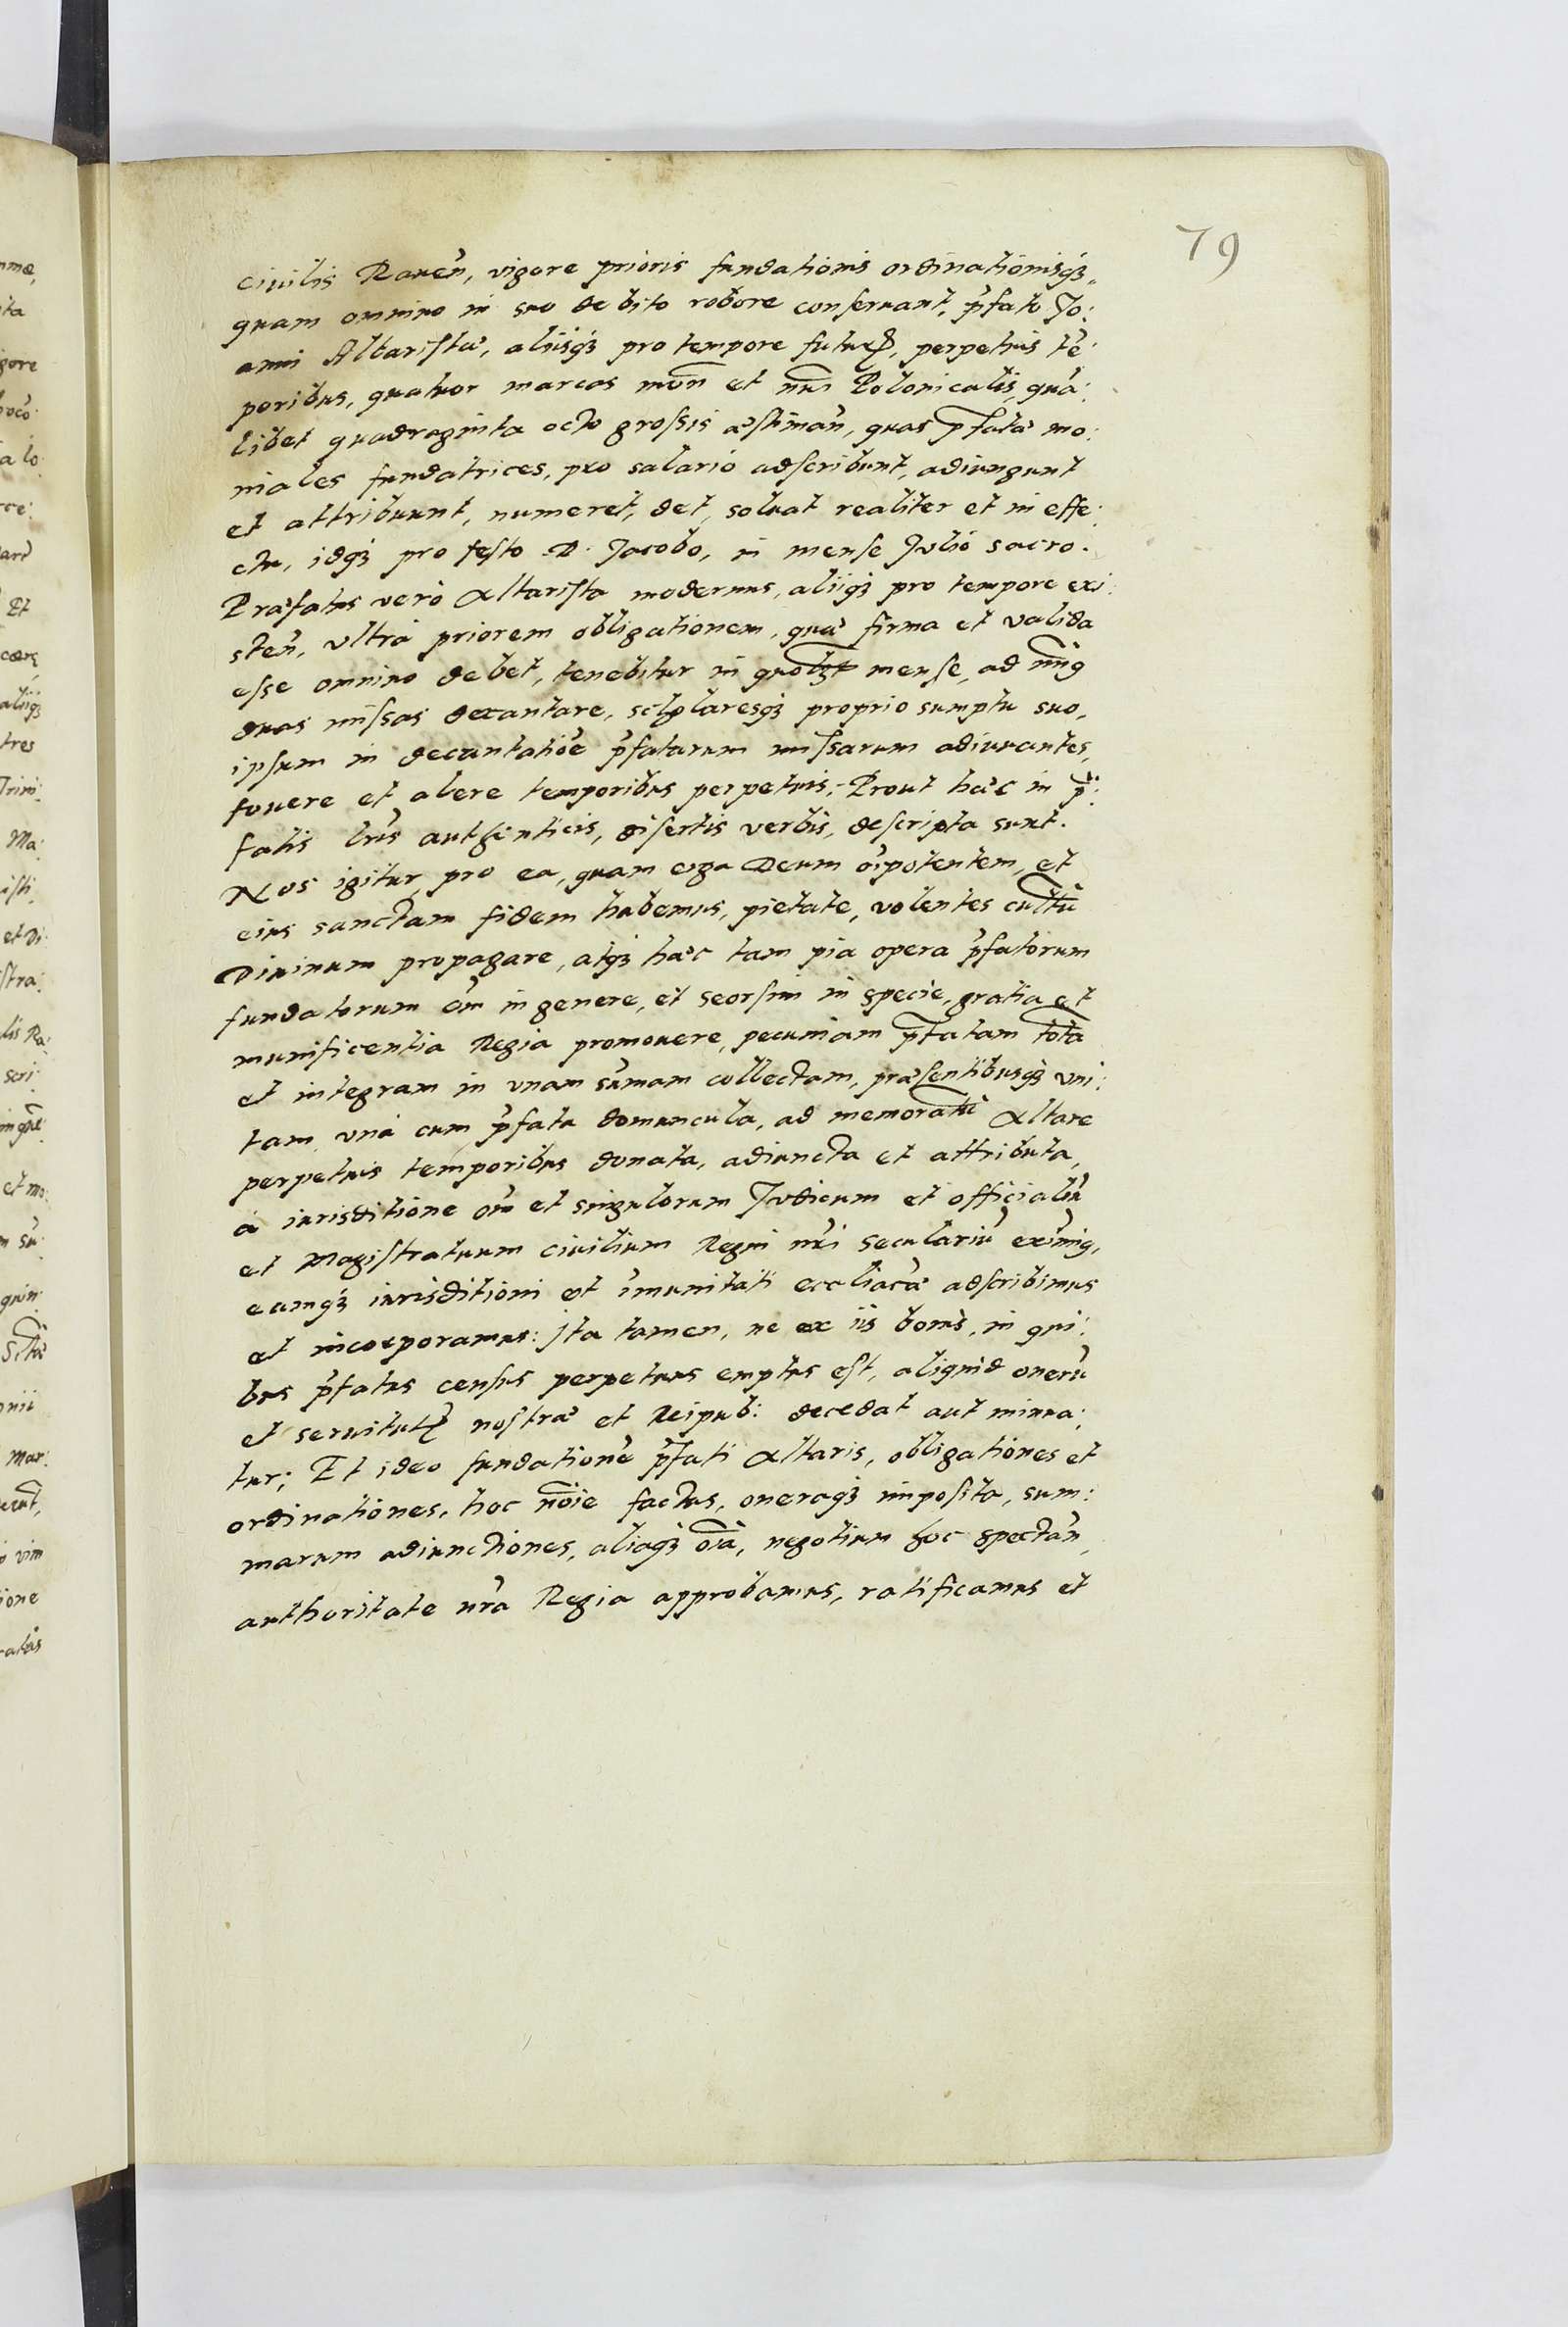 79
ciuilis Rauen̄, vigore prioris fundationis ordinationisq₃,
quam omnino in suo debito robore conseruant, p̄fato Jo:
anni Altaristæ, aliisq₃ pro tempore futuris, perpetuis tē:
poribus, quatuor marcas mon̄ et nūi Polonicalis, quā:
libet quadraginta octo grossis æstiman̄, quas p̄fatæ mo:
niales fundatrices, pro salario adscribunt, adiungunt
et attribuunt, numeret, det, soluat realiter et in effe:
ctu, idq₃ pro festo D. Jacobo, in mense Julio sacro.
Præfatus verò Altarista modernus, aliiq₃ pro tempore exi:
sten̄, vltrà priorem obligationem, quæ firma et valida
esse omnino debet, tenebitur in quolꝫt mense, ad min9
duas missas decantare, scholaresq₃ proprio sumptu suo,
ipsum in decantatiōe p̄fatarum missarum adiuuantes,
fouere et alere temporibus perpetuis: Prout hæc in p̄:
fatis lr̄is authenticis, disertis verbis, descripta sunt.
Nos igitur pro ea, quam erga Deum oīpotentem, et
eius sanctam fidem habemus, pietate, volentes cultū
Diuinum propagare, atq₃ hæc tam pia opera p̄fatorum
fundatorum oīm in genere, et seorsim in specie, gratia et
munificentia Regia promouere, pecuniam p̄fatam totā
et integram in vnam sūmam collectam, præsentibusq₃ vni:
tam, vnà cum p̄fata domuncula, ad memoratū Altare
perpetuis temporibus donata, adiuncta et attributa,
à iurisditione oīm et singulorum Judicum et officialiū
et Magistratuum ciuilium Regni nr̄i seculariū eximim9,
eamq₃ iurisditioni et īmunitati eccliacæ adscribimus
et incorporamus: jta tamen, ne ex iis bonis, in qui:
bus p̄fatus census perpetuus emptus est, aliquid onerū
et seruitutis nostræ et Reipub: decedat aut minua:
tur; Et ideo fundationē p̄fati Altaris, obligationes et
ordinationes, hoc noīe factas, oneraq₃ imposita, sum:
marum adiunctiones, aliaq₃ oīa, negotium hoc spectan̄,
authoritate nr̄a Regia approbamus, ratificamus et